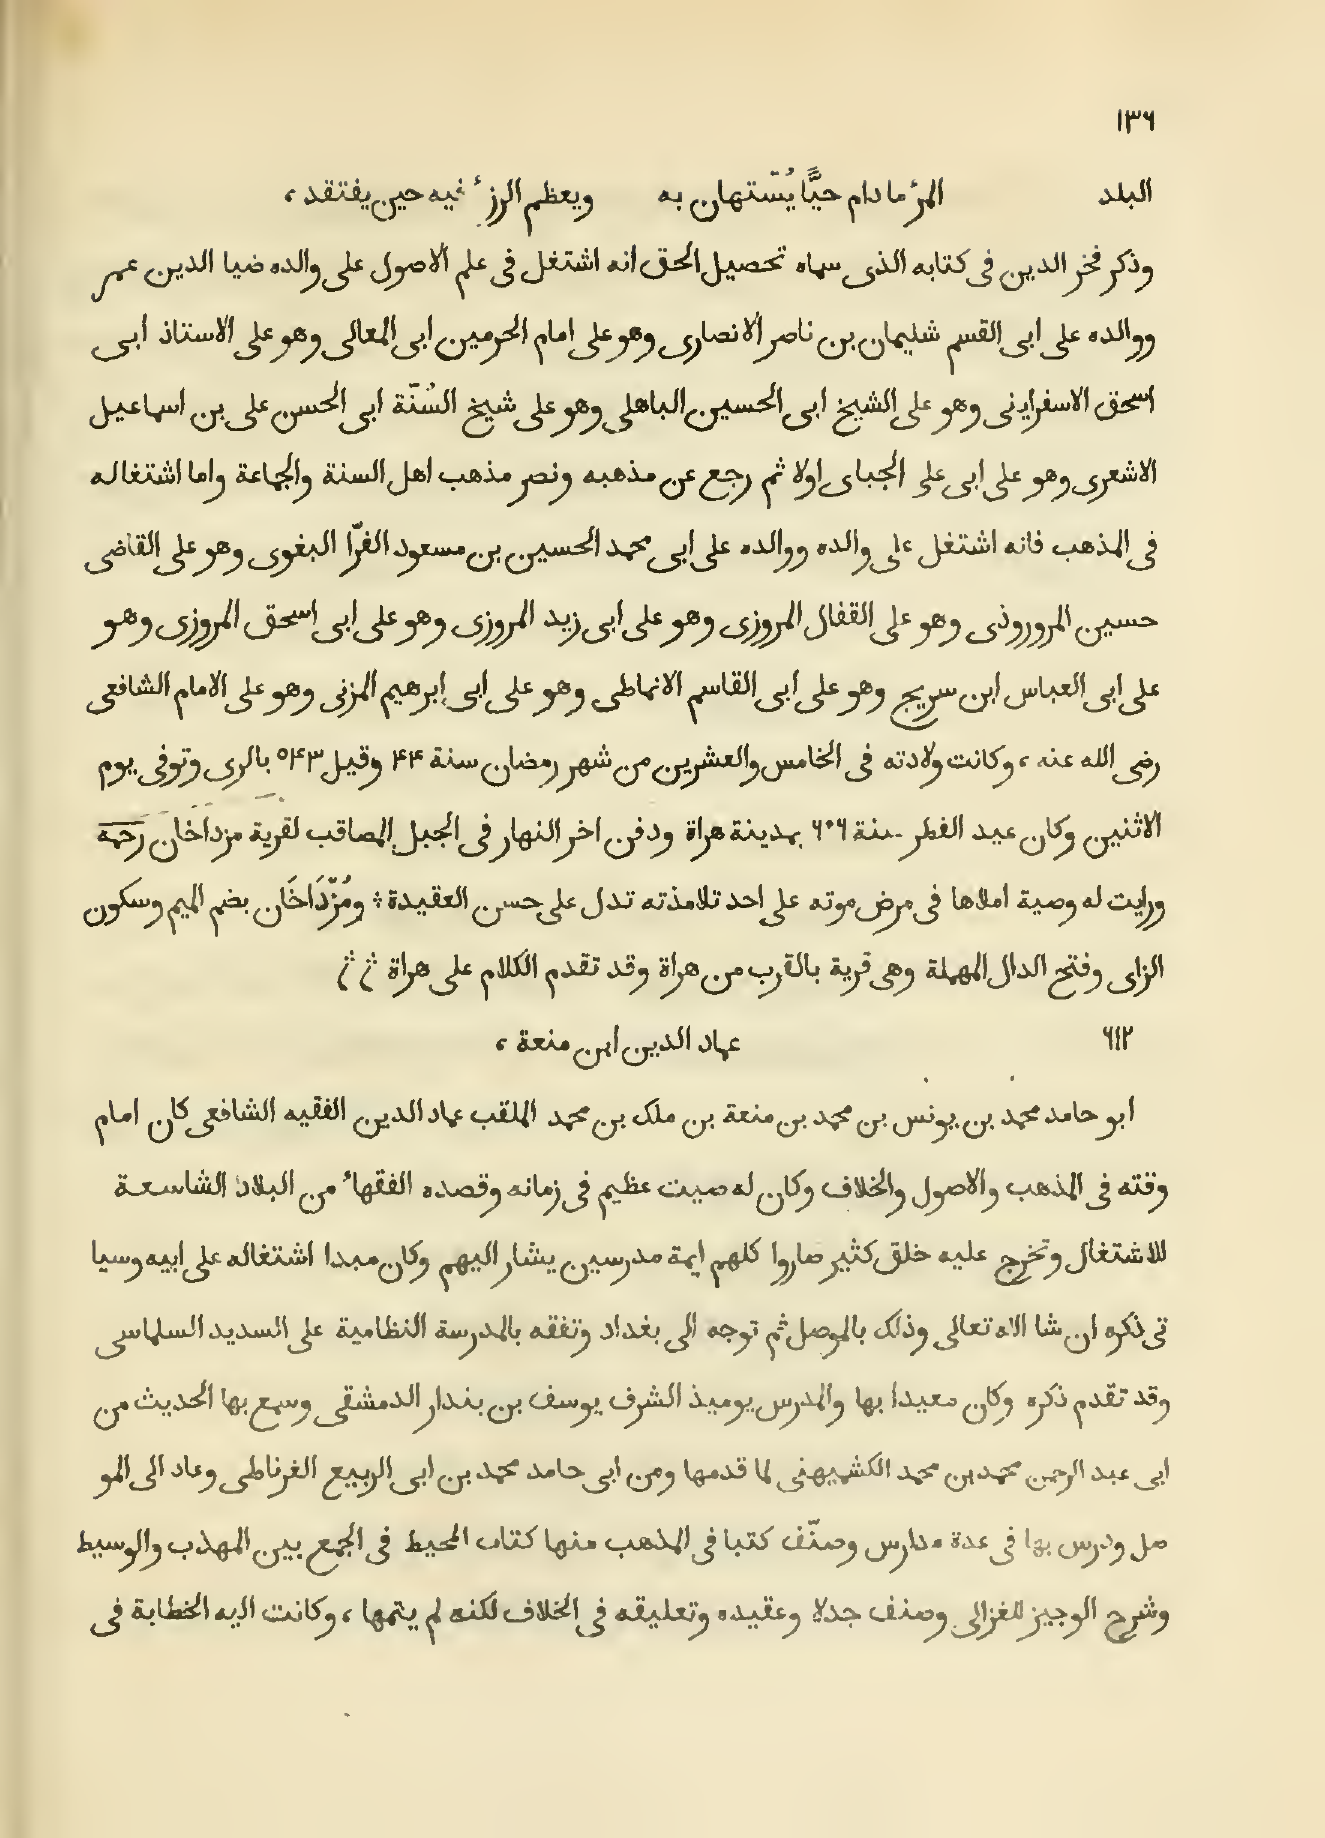 ١٣٦
البلد المرؑ ما دام حيًّا يُسْتهان به ويعظم الرزؑ فيه حين يفتقد ،
وذكر فخر الدين فى كتابه الذى سماه تحصيل الحق انه اشتغل فى علم الاصول على والده ضيا الدين عمر
ووالده على ابى القسم شليمان بن ناصر الانصارى وهو على امام الحرمين ابى المعالى وهو على الاستاذ ابى
اسحق الاسفراينى وهو على الشيخ ابى الحسين الباهلى وهو على شيخ السُنّة ابى الحسن على بن اسماعيل
الاشعرى وهو على ابى على الجباى اولا ثم رجع عن مذهبه ونصر مذهب اهل السنة والجماعة واما اشتغاله
فى المذهب فانه اشتغل على والده ووالده على ابى محمد الحسين بن مسعود الفرّا البغوى وهو على القاضى
حسين المروروذى وهو على القفال المروزى وهو على ابى زيد المروزى وهو على ابى اسحق المروزى وهو
على ابى العباس ابن سريج وهو على ابى القاسم الانماطى وهو على ابى ابرهيم المزنى وهو على الامام الشافعى
رضى الله عنه ، وكانت ولادته فى الخامس والعشرين من شهر رمضان سنة ۴۴ وقيل ۵۴۳ بالرى وتوفى يوم
الاثنين وكان عيد الفطر سنة ٦٠٦ بمدينة هراة ودفن اخر النهار فى الجبل المصاقب لقرية مزداخان رحمه
ورايت له وصية املاها فى مرض موته على احد تلامذته تدل على حسن العقيدة ؞ ومُزْدَاخَان بضم الميم وسكون
الزاى وفتح الدال المهملة وهى قرية بالقرب من هراة وقد تقدم الكلام على هراة
٦١٢ عماد الدين ابن منعة ،
ابو حامد محمد بن يونس بن محمد بن منعة بن ملك بن محمد الملقب عماد الدين الفقيه الشافعى كان امام
وقته فى المذهب والاصول والخلاف وكان له صيت عظيم فى زمانه وقصده الفقهاؑ من البلاد الشاسعة
للاشتغال وتخرج عليه خلق كثير صاروا كلهم ايمة مدرسين يشار اليهم وكان مبدا اشتغاله على ابيه وسيا
تى ذكره ان شا الله تعالى وذلك بالموصل ثم توجه الى بغداد وتفقه بالمدرسة النظامية على السديد السلماسى
وقد تقدم ذكره وكان معيدا بها والمدرس يوميذ الشرف يوسف بن بندار الدمشقى وسمع بها الحديث من
ابى عبد الرحمن محمد بن محمد الكشميهنى لما قدمها ومن ابى حامد محمد بن ابى الربيع الغرناطى وعاد الى المو
صل ودرس بها فى عدة مدارس وصنّف كتبا فى المذهب منها كتاب المحيط فى الجمع بين المهذب والوسيط
وشرح الوجيز للغزالى وصنف جدلا وعقيده وتعليقه فى الخلاف لكنه لم يتمها ، وكانت اليه الخطابة فى